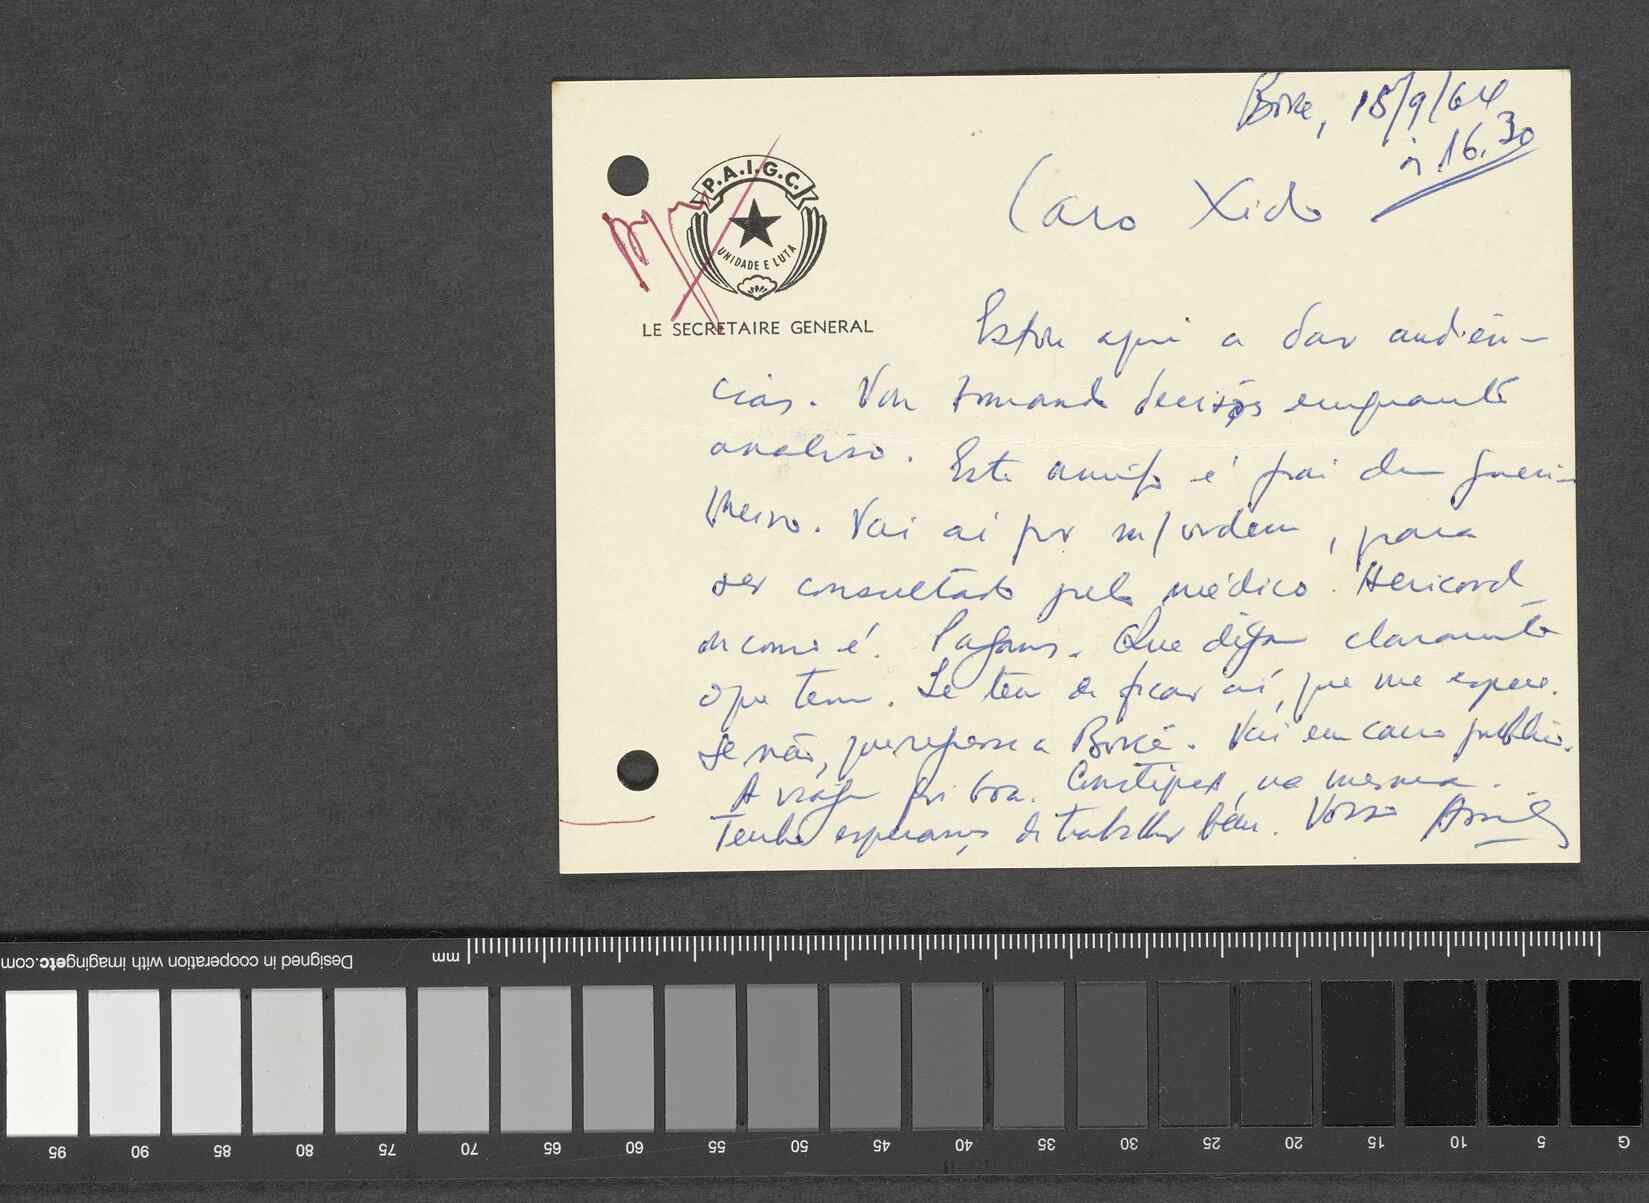 Boké, 18/9/64
à 16.30
P.A.I.G.C.
UNIDADE E LUTA
LE SECRETAIRE GENERAL
Caro Xido
Estou aqui a dar audiên-
cias. Vou tomando decisões enquanto
analiso. Este amigo é pai dum guerri-
lheiro. Vai aí por m/ordem, para
ser consultado pelo médico.
como é. Pagamos. Que diga claramente
o que tem. Se tem de ficar aí, que me espere.
Se não, que regresse a Boké. Vai em carro público.
A viagem foi boa. Constipado, na mesma.
Tenho esperanças de trabalhar bem. Vosso
Designed in cooperation with imagingetc.com
mm
95 90 85 80 75 70 65 60 55 50 45 40 35 30 25 20 15 10 5 G